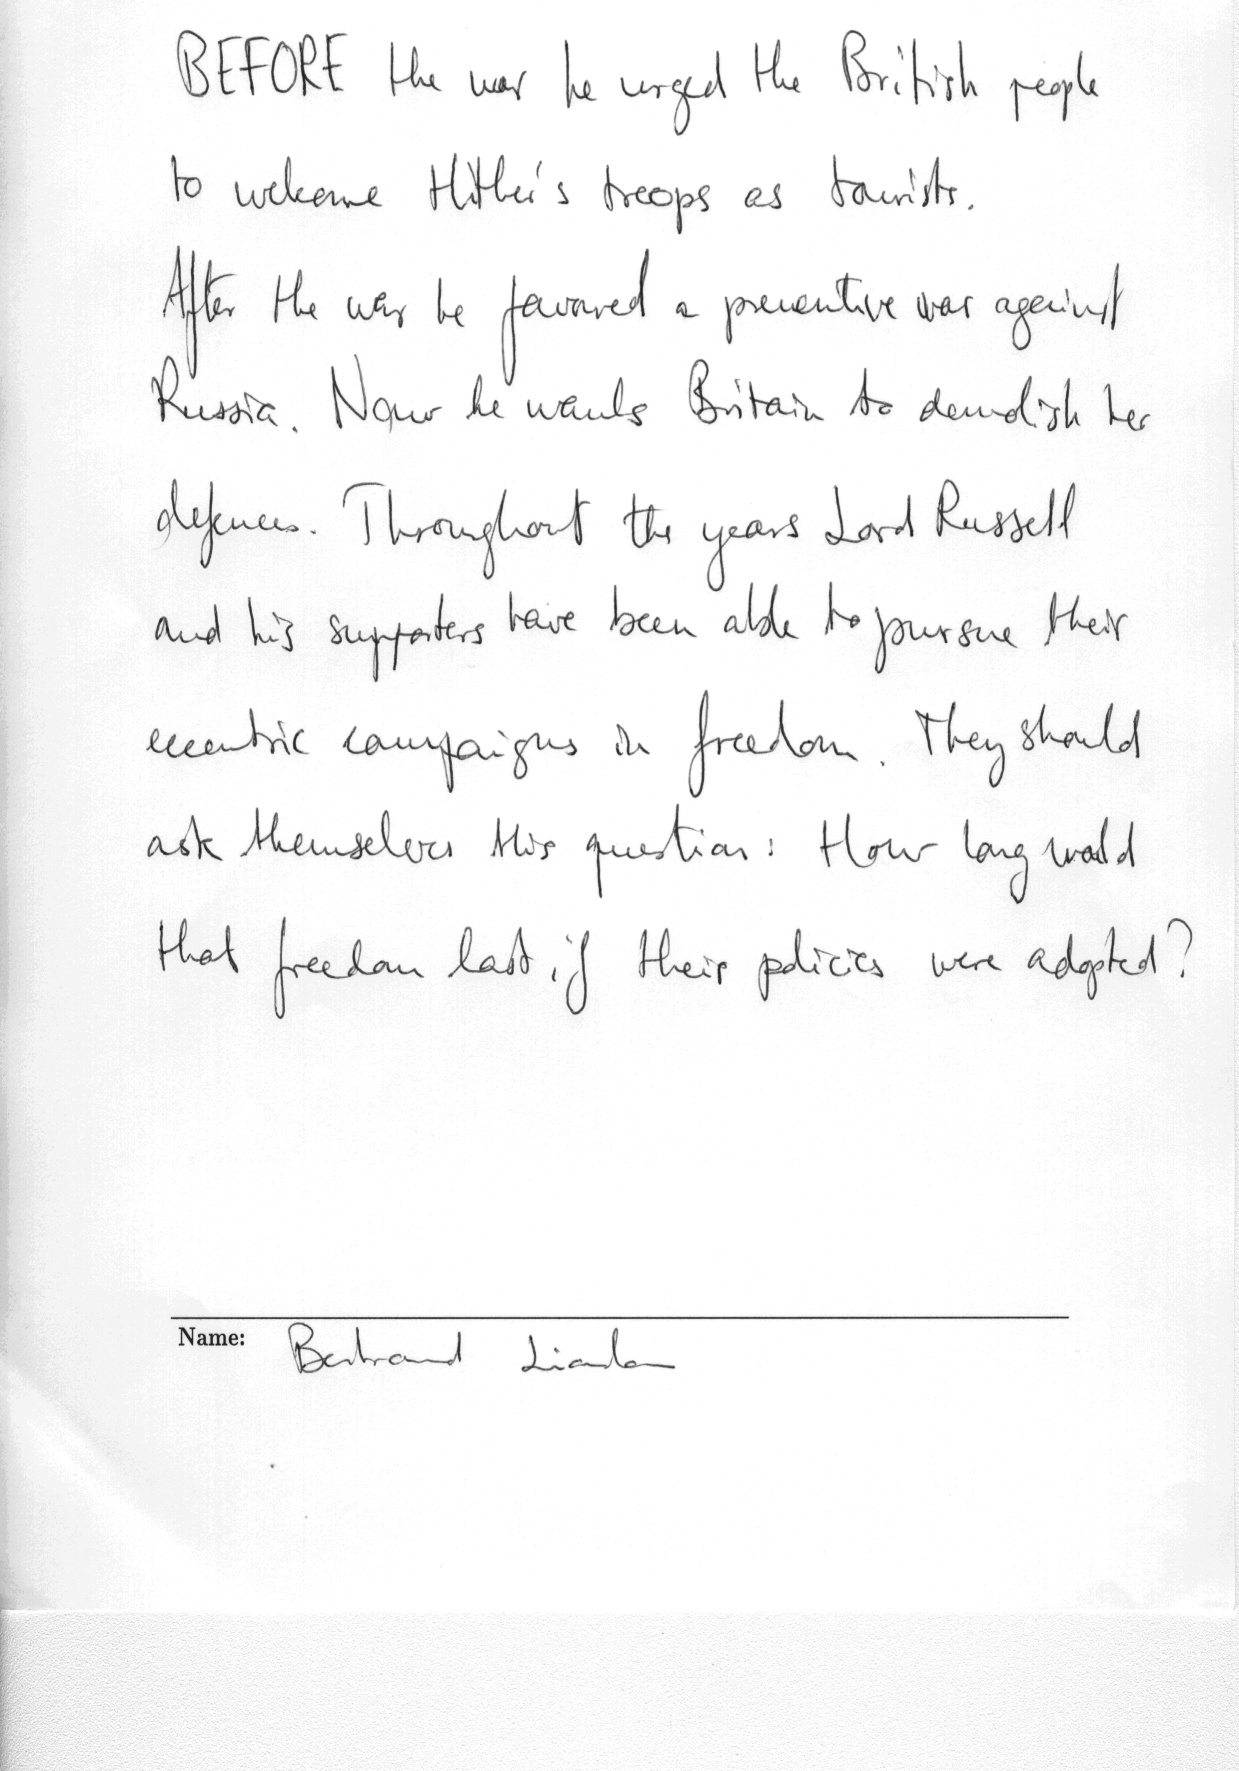 BEFORE the war he urged the British people
to welcome Hitler's troops as tourists.
After the war he favoured a preventive war against
Russia. Now he wants Britain to demolish her
defences. Throughout the years Lord Russell
and his supporters have been able to pursue their
eccentric campaigns in freedom. They should
ask themselves this question: How long would
that freedom last, if their policies were adopted?
Name: Bertrand